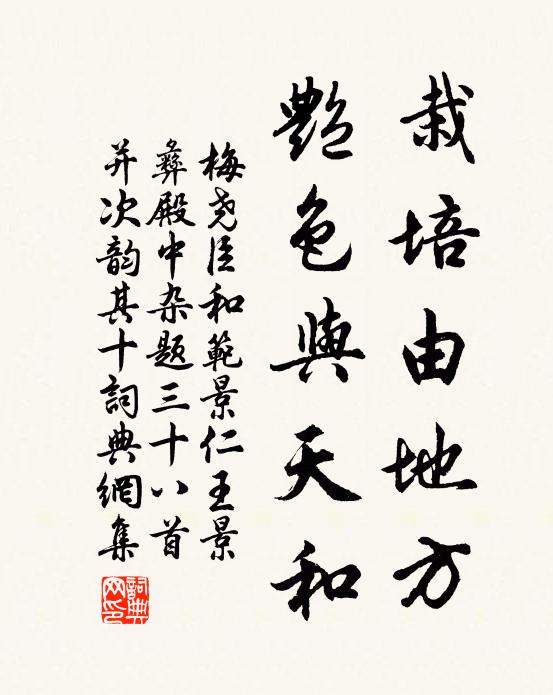 栽培由地方
艶色與天和
梅尧臣和範景仁王景
彝殿中杂题三十八首
并次韵其十詞典網集
詞典网印